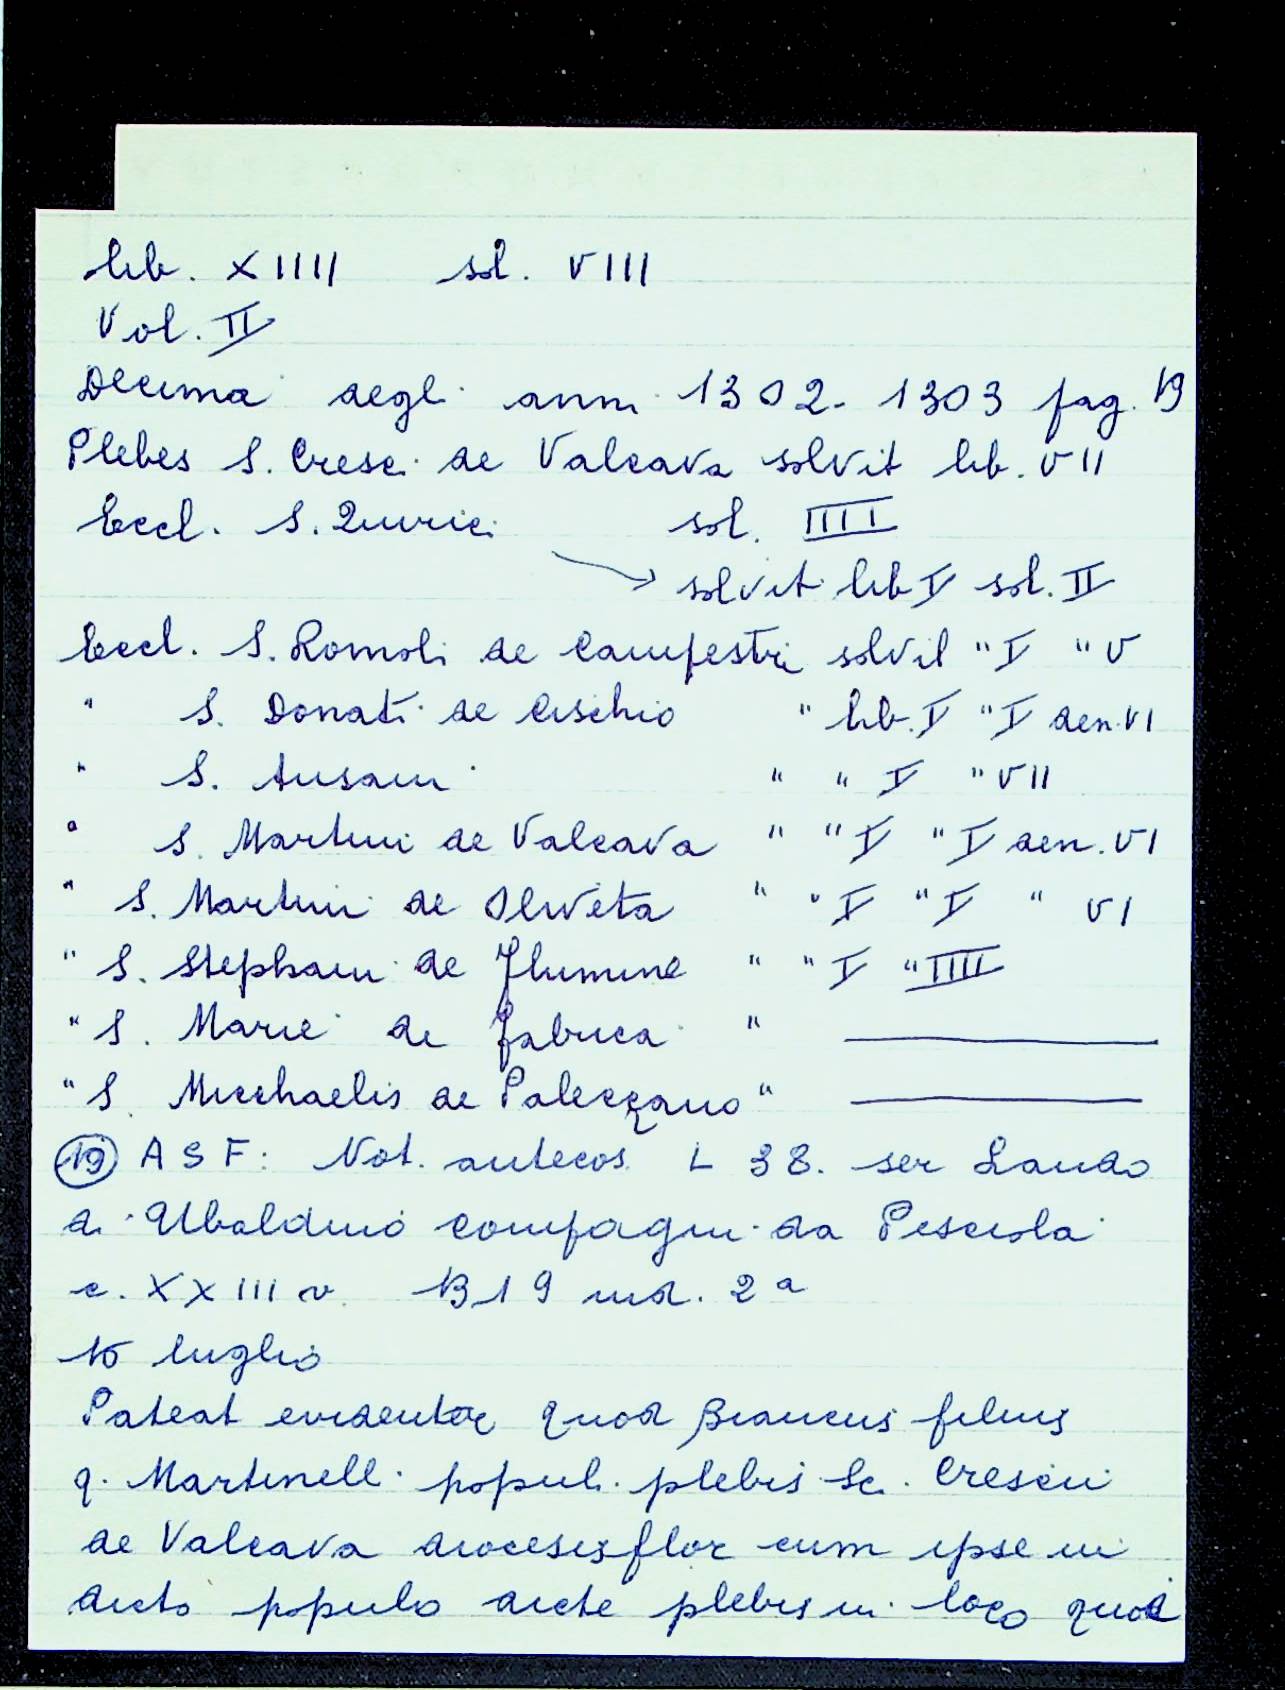 lib. XIIII sol. VIII
Vol. II
Decima degli anni 1302-1303 pag. 19
Plebes S. Cresci de Valcava solvit lib. VII
Eccl. S. Quirici sol. IIII
solvit lib I sol. II
Eccl. S. Romoli de Campestri solvit " I " V
" S. Donati de Cischio " lib. I " I den. VI
" S. Ansani " " I " VII
" S. Martini de Valcava " " I " I den. VI
" S. Martini de Oliveta " " I " I " VI
" S. Stephani de Flumine " " I " IIII
" S. Marie de Fabrica "
" S. Micchaelis de Palezzano "
19 A S F: Not. antecos. L 38. ser Lando
di Ubaldino compagni da Pesciola
c. XXIII v. 1319 ind. 2ª
16 luglio
Pateat evidenter quod Biancus filius
q. Martinelli populi plebis Sc. Crescii
de Valcava diocesis flor cum ipse in
dicto populo dicte plebis in loco quod